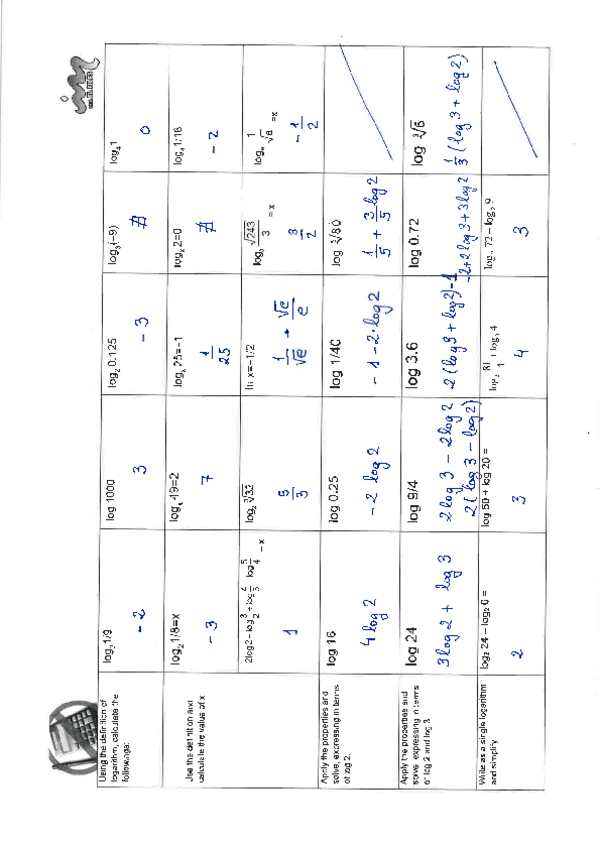 Using the definition of
logarithm, calculate the
followings:
log₃ 1/9
- 2
log 1000
3
log₂ 0.125
- 3
log₃(-9)
∄
log₄ 1
0
Use the definition and
calculate the value of x
log₂ 1/8=x
- 3
logₓ 49=2
7
logₓ 25=-1
1/25
logₓ 2=0
∄
log₄ 1/16
- 2
1
log₂ ∛32
5/3
ln x=-1/2
= x
3/2
=x
- 1/2
Apply the properties and
solve, expressing in terms
of log 2.
log 16
4 log 2
log 0.25
- 2 log 2
log 1/40
- 1 - 2·log 2
1/5 + 3/5 log 2
Apply the properties and
solve expressing in terms
of log 2 and log 3
log 24
3 log 2 + log 3
log 9/4
2 log 3 - 2 log 2
2 ( log 3 - log 2)
log 3.6
2 (log 3 + log 2) - 1
log 0.72
-2+2 log 3 + 3 log 2
log ∛6
1/3 (log 3 + log 2)
Write as a single logarithm
and simplify
log₂ 24 – log₂ 6 =
2
log 50 + log 20 =
3
4
72 – log₂ 9
3